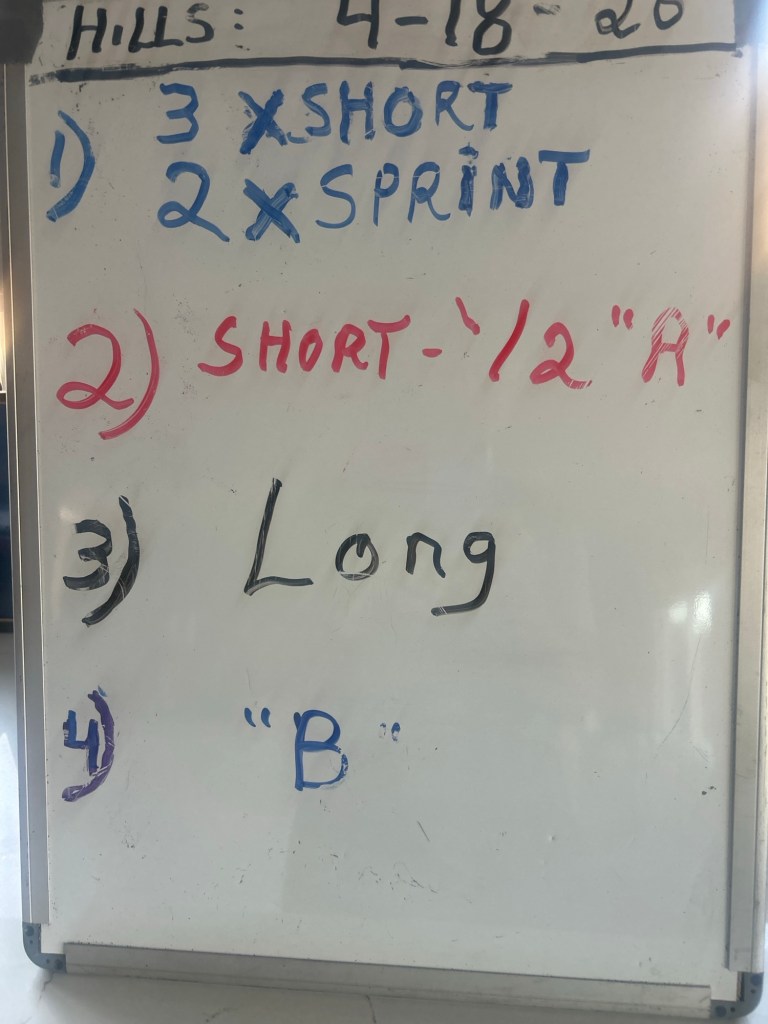 HILLS: 4-18-26
1) 3 X SHORT
2 X SPRINT
2) SHORT - 1/2 "A"
3) Long
4) "B"